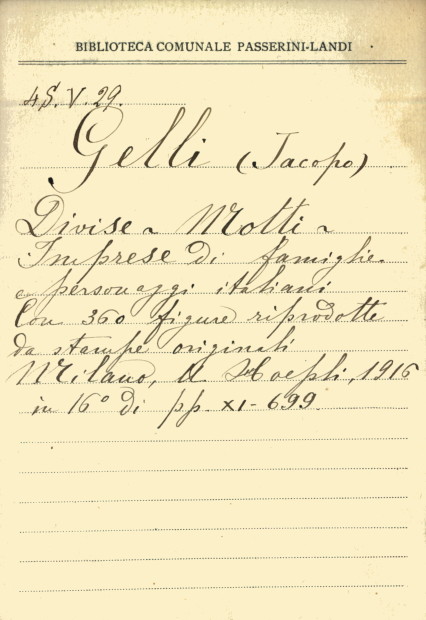 BIBLIOTECA COMUNALE PASSERINI-LANDI
4S.V.29.
Gelli (Jacopo)
Divise ~ Motti ~
Imprese di famiglie
e personaggi italiani
Con 360 figure riprodotte
da stampe originali
Milano, U. Hoepli, 1916
in 16° di pp. XI-699.